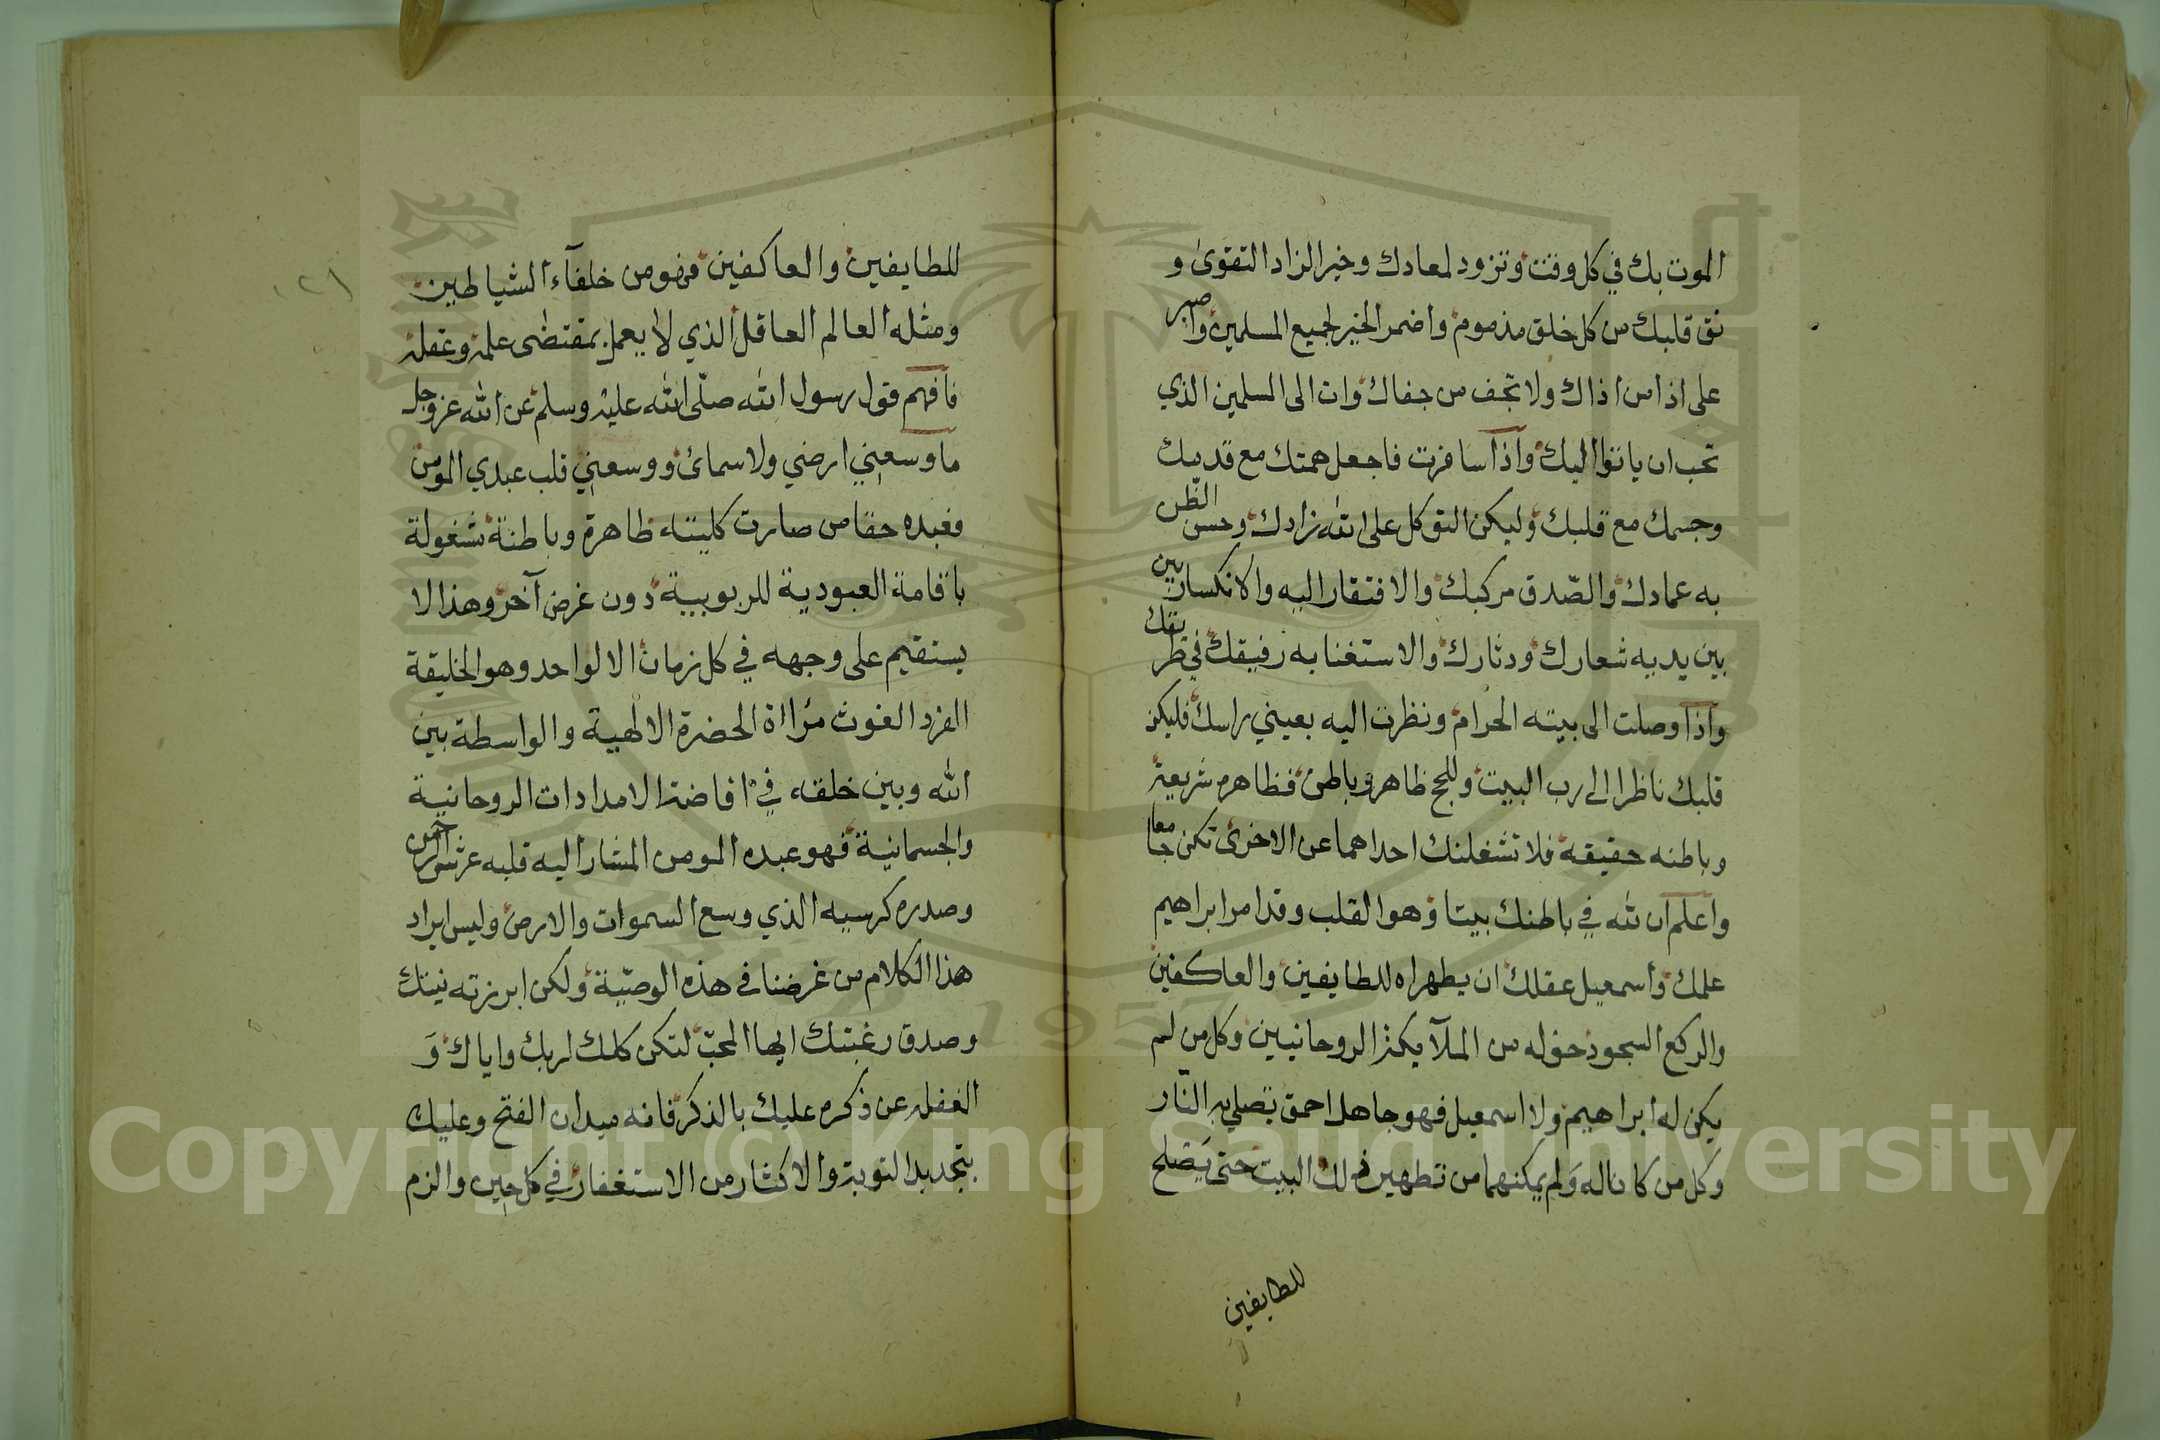 الموت بك في كل وقت وتزود لمعادك وخير الزاد التقوى و
نق قلبك من كل خلق مذموم واضمر الخير لجميع المسلمين واصبر
على اذا من اذاك ولا تجف من جفاك وات الى المسلمين الذي
تحب ان ياتوا اليك واذا سافرت فاجعل همتك مع قدميك
وجسمك مع قلبك وليكن التوكل على الله زادك وحسن الظن
به عمادك والصدق مركبك والافتقار اليه والانكسار بين
بين يديه شعارك ودثارك والاستغنا به رفيقك في
واذا وصلت الى بيته الحرام ونظرت اليه بعيني راسك فليكن
قلبك ناظرا الى رب البيت وللحج ظاهر وباطن فظاهره شريعة
وباطنه حقيقة فلا تشغلنك احداهما عن الاخرى تكن
واعلم ان لله في باطنك بيتا وهو القلب وقد امر ابراهيم
علمك وأسمعيل عقلك ان يطهراه للطايفين والعاكفين
والركع السجود حوله من الملآيكة الروحانيين وكل من لم
يكن له ابراهيم ولا اسمعيل فهو جاهل احمق تصلي به النار
وكل من كانا له ولم يمكنهما من تطهير ذلك البيت حتى يصلح
للطايفين
للطايفين والعاكفين فهو من خلفآء الشياطين
ومثله العالم العاقل الذي لا يعمل بمقتضى علمه وعقله
فافهم قول رسول الله صلّى الله عليه وسلم عن الله عز وجل
ما وسعني ارضي ولا سمائ ووسعني قلب عبدي المومن
فعبده حقا من صارت كليته ظاهرة وباطنة مشغولة
باقامة العبودية للربوبية دون غرض آخر وهذا لا
يستقيم على وجهه في كل زمان الا لواحد وهو الخليفة
الفرد الغوث مرااة الحضرة الالهية والواسطة بين
الله وبين خلقه في افاضة الامدادات الروحانية
والجسمانية فهو عبده المومن المشار اليه قلبه عرش الرحمن
وصدره كرسيه الذي وسع السموات والارض وليس ايراد
هذا الكلام من غرضنا في هذه الوصيّة ولكن ابرزته نيتك
وصدق رغبتك ايها المحبّ لتكن كلك لربك واياك وَ
الغفلة عن ذكره عليك بالذكر فانه ميدان الفتح وعليك
بتجديد التوبة والاكثار من الاستغفار في كل حين والزم
Copyright © King Saud University
1957